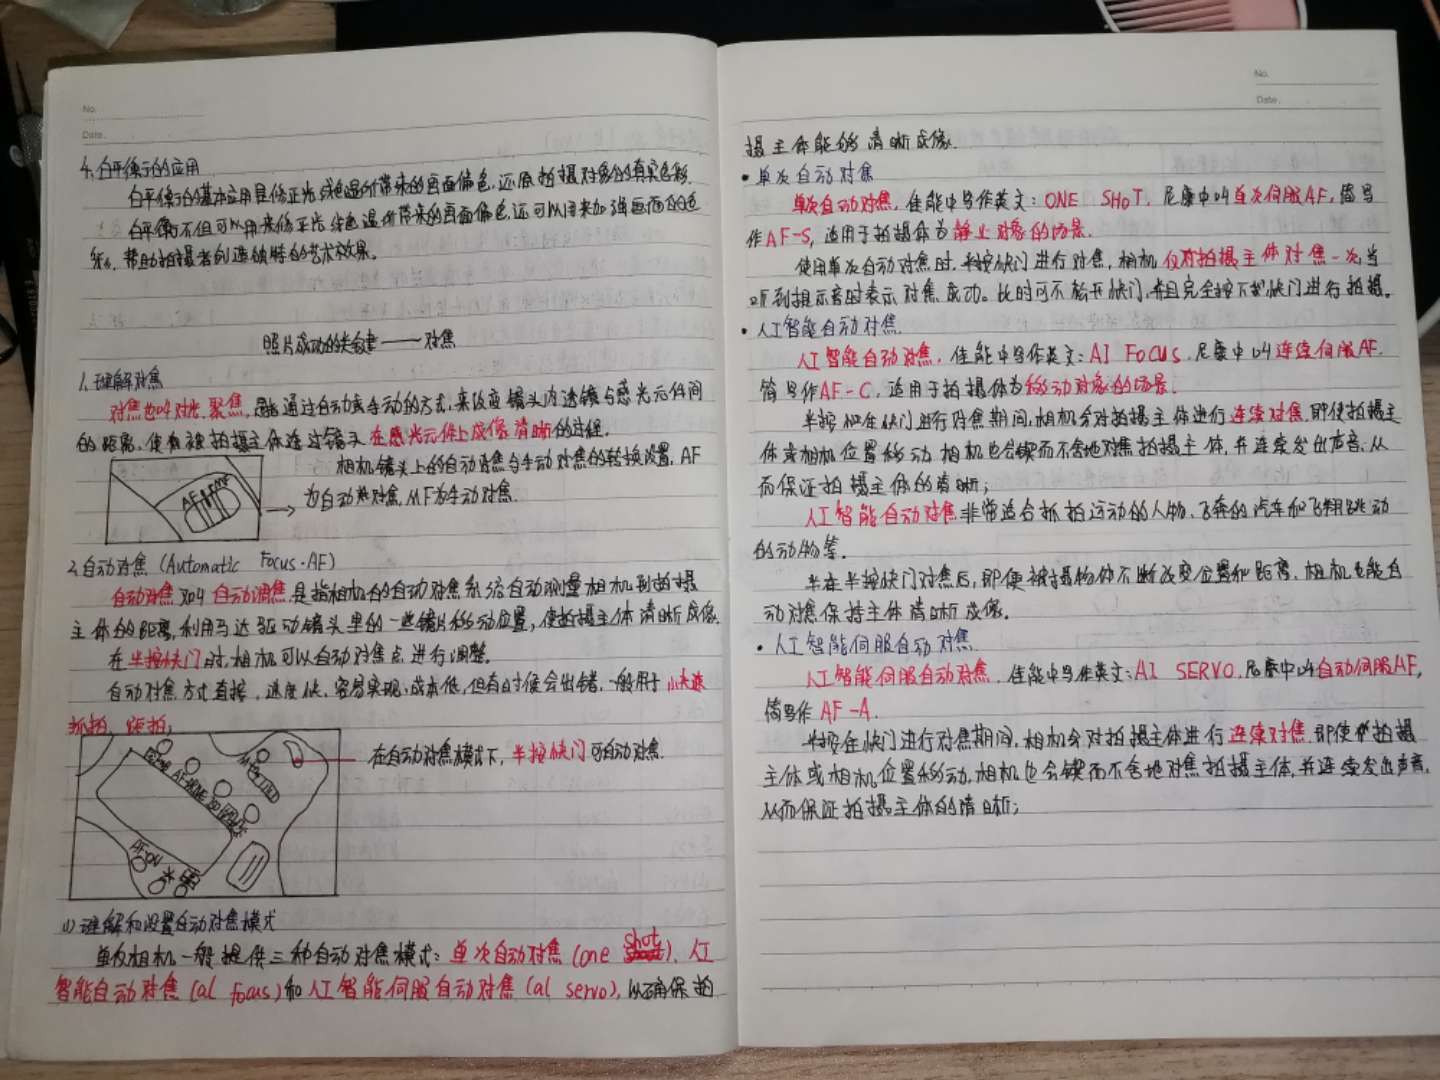 No.
Date.
4.白平衡的应用
白平衡的基本应用是修正光线色温所带来的画面偏色,还原拍摄对象的真实色彩.
白平衡不但可以用来修正光线色温所带来的画面偏色,还可以用来加强画面的色
彩。帮助拍摄者创造独特的艺术效果。
照片成功的关键——对焦
1.理解对焦
对焦也叫对光、聚焦,是指通过自动或手动的方式,来改变镜头内透镜与感光元件间
的距离,使有被拍摄主体透过镜头在感光元件上成像清晰的过程.
相机镜头上的自动对焦与手动对焦的转换设置,AF
为自动对焦,MF为手动对焦.
AF MF
2.自动对焦(Automatic Focus·AF)
自动对焦又叫自动调焦,是指相机的自动对焦系统自动测量相机到拍摄
主体的距离,利用马达驱动镜头里的一些镜片移动位置,使拍摄主体清晰成像.
在半按快门时,相机可以自动对焦点进行调整。
自动对焦方式直接,速度快、容易实现,成本低,但有时候会出错,一般用于快速
抓拍、跟拍;
在自动对焦模式下,半按快门可自动对焦.
AF-ON
(1)理解和设置自动对焦模式
单反相机一般提供三种自动对焦模式:单次自动对焦(one shot)、人工
智能自动对焦(al focus)和人工智能伺服自动对焦(al servo),以确保拍
No.
Date.
摄主体能够清晰成像.
·单次自动对焦
单次自动对焦,佳能中写作英文:ONE SHOT,尼康中叫单次伺服AF,简写
作AF-S,适用于拍摄体为静止对象的场景.
使用单次自动对焦时,半按快门进行对焦,相机仅对拍摄主体对焦一次,当
听到提示音时表示对焦成功。此时可不松开快门,并且完全按下快门进行拍摄。
·人工智能自动对焦.
人工智能自动对焦,佳能中写作英文:AI FOCUS.尼康中叫连续伺服AF.
简写作AF-C,适用于拍摄体为移动对象的场景.
半按住快门进行对焦期间,相机会对拍摄主体进行连续对焦.即使拍摄主
体或相机位置移动,相机也会锲而不舍地对焦拍摄主体,并连续发出声音,从
而保证拍摄主体的清晰;
人工智能自动对焦非常适合抓拍运动的人物、飞奔的汽车和飞翔跳动
的动物等.
半在半按快门对焦后,即便被摄物体不断改变位置和距离,相机也能自
动对焦保持主体清晰成像.
·人工智能伺服自动对焦
人工智能伺服自动对焦,佳能中写作英文:AI SERVO.尼康中叫自动伺服AF,
简写作AF-A.
半按住快门进行对焦期间,相机会对拍摄主体进行连续对焦.即使拍摄
主体或相机位置移动,相机也会锲而不舍地对焦拍摄主体,并连续发出声音,
从而保证拍摄主体的清晰;